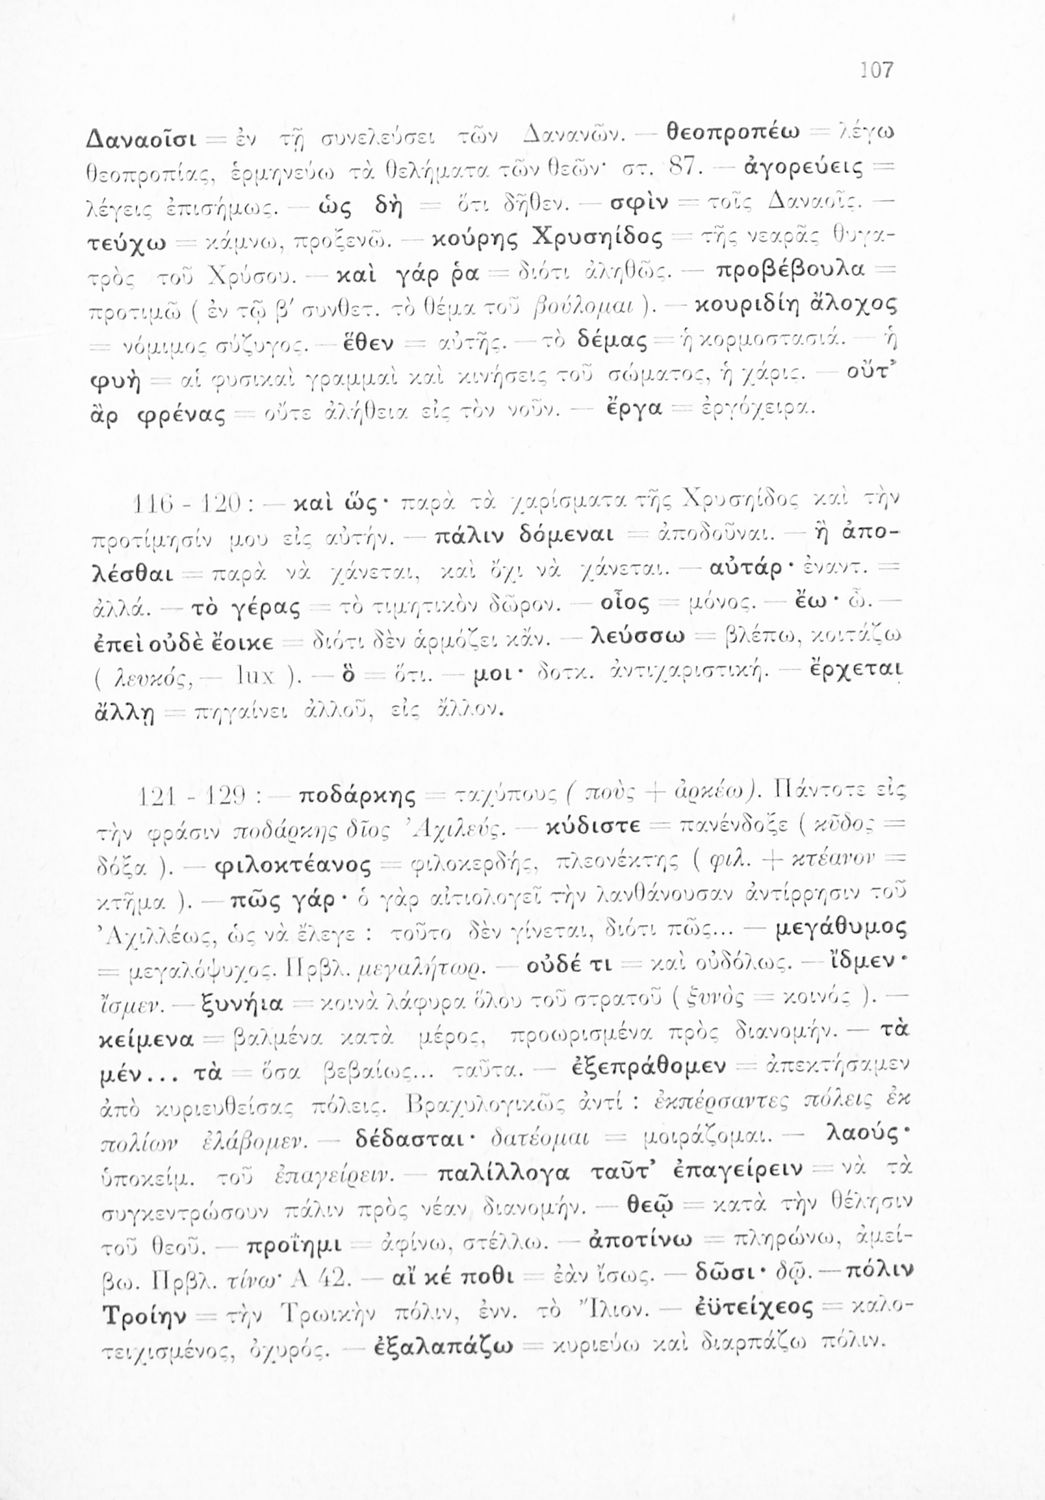 107
Δαναοῖσι = ἐν τῇ συνελεύσει τῶν Δαναῶν. — θεοπροπέω = λέγω
θεοπροπίας, ἑρμηνεύω τὰ θελήματα τῶν θεῶν· στ. 87. — ἀγορεύεις =
λέγεις ἐπισήμως. — ὡς δὴ = ὅτι δῆθεν. — σφὶν = τοῖς Δαναοῖς. —
τεύχω = κάμνω, προξενῶ. — κούρης Χρυσηίδος = τῆς νεαρᾶς θυγα-
τρὸς τοῦ Χρύσου. — καὶ γάρ ῥα = διότι ἀληθῶς. — προβέβουλα =
προτιμῶ ( ἐν τῷ β′ συνθετ. τὸ θέμα τοῦ βούλομαι ). — κουριδίη ἄλοχος
= νόμιμος σύζυγος. — ἕθεν = αὐτῆς. — τὸ δέμας = ἡ κορμοστασιά. — ἡ
φυὴ = αἱ φυσικαὶ γραμμαὶ καὶ κινήσεις τοῦ σώματος, ἡ χάρις. — οὔτ’
ἂρ φρένας = οὔτε ἀλήθεια εἰς τὸν νοῦν. — ἔργα = ἐργόχειρα.
116 - 120 : — καὶ ὥς· παρὰ τὰ χαρίσματα τῆς Χρυσηίδος καὶ τὴν
προτίμησίν μου εἰς αὐτήν. — πάλιν δόμεναι = ἀποδοῦναι. — ἢ ἀπο-
λέσθαι = παρὰ νὰ χάνεται, καὶ ὄχι νὰ χάνεται. — αὐτάρ· ἐναντ. =
ἀλλά. — τὸ γέρας = τὸ τιμητικὸν δῶρον. — οἶος = μόνος. — ἔω· ὦ. —
ἐπεὶ οὐδὲ ἔοικε = διότι δὲν ἁρμόζει κἄν. — λεύσσω = βλέπω, κοιτάζω
( λευκός, — lux ). — ὃ = ὅτι. — μοι· δοτκ. ἀντιχαριστική. — ἔρχεται
ἄλλῃ = πηγαίνει ἀλλοῦ, εἰς ἄλλον.
121 - 129 : — ποδάρκης = ταχύπους ( ποὺς + ἀρκέω ). Πάντοτε εἰς
τὴν φράσιν ποδάρκης δῖος Ἀχιλεύς. — κύδιστε = πανένδοξε ( κῦδος =
δόξα ). — φιλοκτέανος = φιλοκερδής, πλεονέκτης ( φιλ. + κτέανον =
κτῆμα ). — πῶς γάρ· ὁ γὰρ αἰτιολογεῖ τὴν λανθάνουσαν ἀντίρρησιν τοῦ
Ἀχιλλέως, ὡς νὰ ἔλεγε : τοῦτο δὲν γίνεται, διότι πῶς... — μεγάθυμος
= μεγαλόψυχος. Πρβλ. μεγαλήτωρ. — οὐδέ τι = καὶ οὐδόλως. — ἴδμεν·
ἴσμεν. — ξυνήια = κοινὰ λάφυρα ὅλου τοῦ στρατοῦ ( ξυνὸς = κοινός ). —
κείμενα = βαλμένα κατὰ μέρος, προωρισμένα πρὸς διανομήν. — τὰ
μέν... τὰ = ὅσα βεβαίως... ταῦτα. — ἐξεπράθομεν = ἀπεκτήσαμεν
ἀπὸ κυριευθείσας πόλεις. Βραχυλογικῶς ἀντί : ἐκπέρσαντες πόλεις ἐκ
πολίων ἐλάβομεν. — δέδασται· δατέομαι = μοιράζομαι. — λαούς·
ὑποκείμ. τοῦ ἐπαγείρειν. — παλίλλογα ταῦτ’ ἐπαγείρειν = νὰ τὰ
συγκεντρώσουν πάλιν πρὸς νέαν διανομήν. — θεῷ = κατὰ τὴν θέλησιν
τοῦ θεοῦ. — προΐημι = ἀφίνω, στέλλω. — ἀποτίνω = πληρώνω, ἀμεί-
βω. Πρβλ. τίνω· Α 42. — αἴ κέ ποθι = ἐὰν ἴσως. — δῶσι· δῷ. — πόλιν
Τροίην = τὴν Τρωικὴν πόλιν, ἐνν. τὸ Ἴλιον. — ἐϋτείχεος = καλο-
τειχισμένος, ὀχυρός. — ἐξαλαπάζω = κυριεύω καὶ διαρπάζω πόλιν.